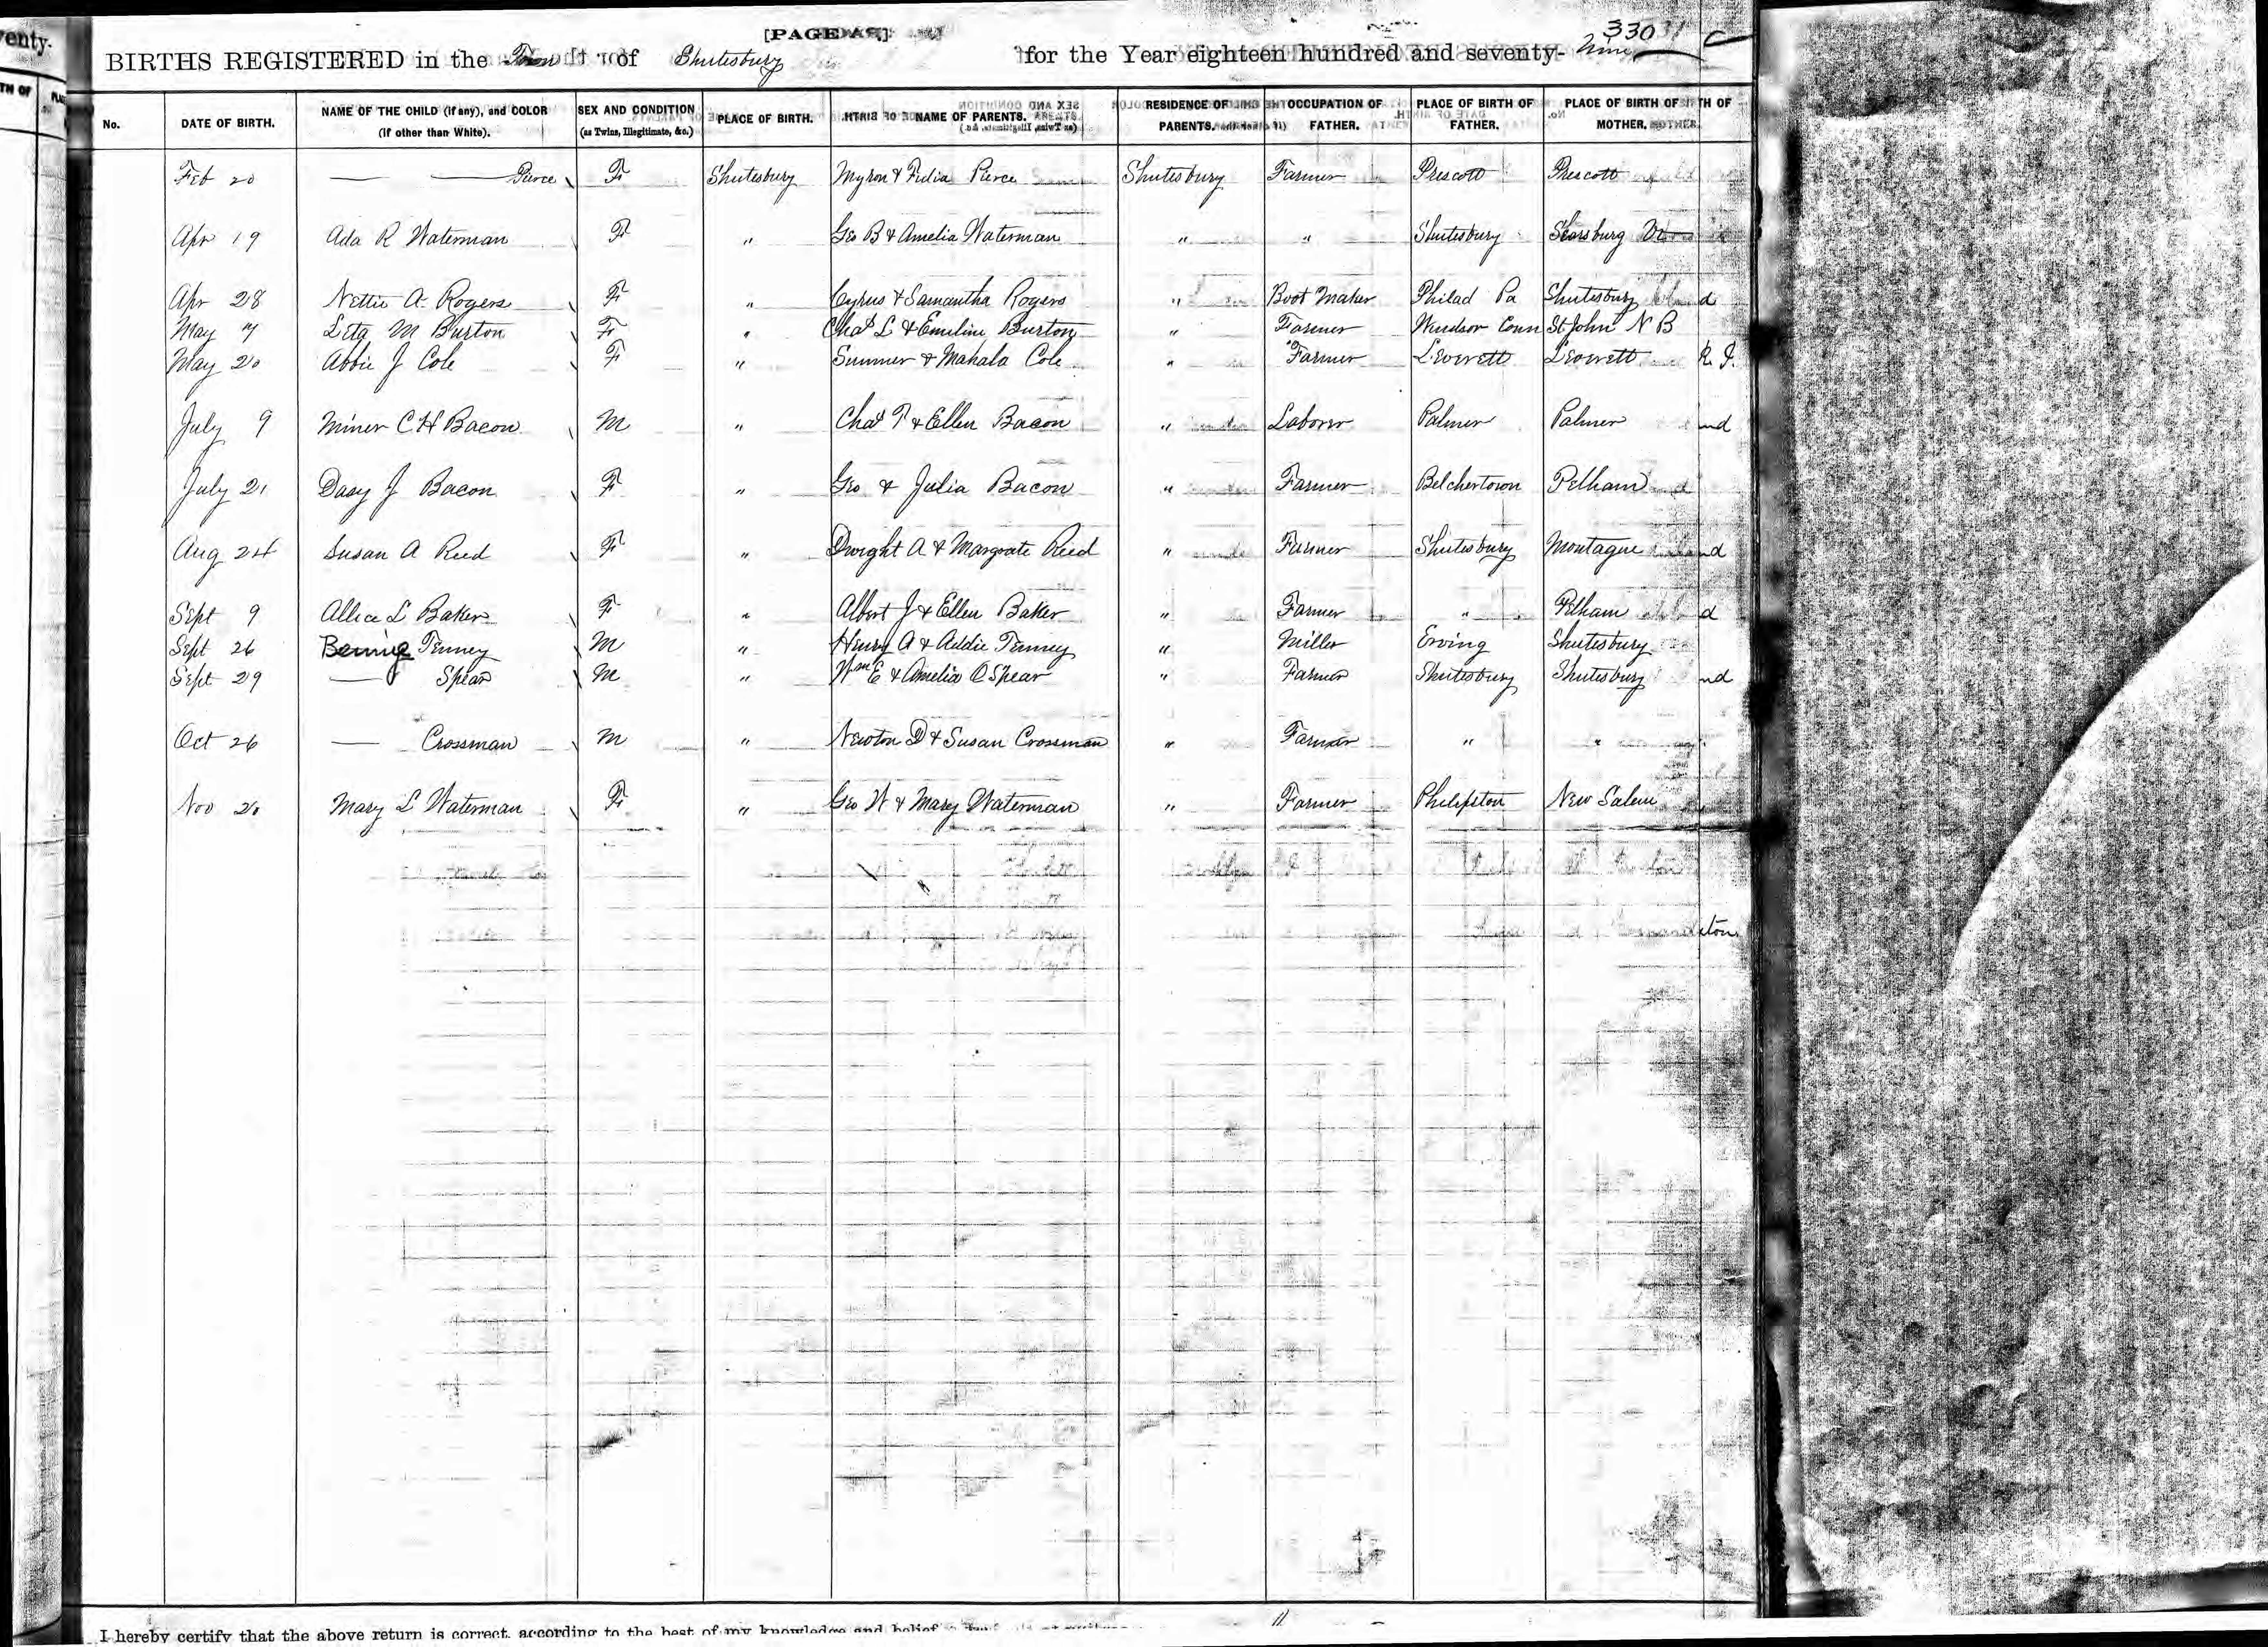 enty.
[PAGE
330
BIRTHS REGISTERED in the Town of Shutesbury for the Year eighteen hundred and seventy- Nine
No. DATE OF BIRTH. NAME OF THE CHILD (if any), and COLOR (if other than White). SEX AND CONDITION (as Twins, Illegitimate, &c.) PLACE OF BIRTH. NAME OF PARENTS. RESIDENCE OF PARENTS. OCCUPATION OF FATHER. PLACE OF BIRTH OF FATHER. PLACE OF BIRTH OF MOTHER.
Feb 20 — — Pierce F Shutesbury Myron & Pierce Shutesbury Farmer Prescott Prescott
Apr 19 Ada R Waterman F " Geo B & Amelia Waterman " " Shutesbury Searsburg Vt
Apr 28 Nettie A. Rogers F " Cyrus & Samantha Rogers " Boot Maker Philad Pa Shutesbury
May 7 Leta M Burton F " Chas L & Emeline Burton " Farmer Windsor Conn St John N B
May 20 Abbie J Cole F " Sumner & Mahala Cole " Farmer Leverett Leverett R. I.
July 9 Miner C H Bacon M " Chas T & Ellen Bacon " Laborer Palmer Palmer
July 21 Dasy J Bacon F " Geo & Julia Bacon " Farmer Belchertown Pelham
Aug 24 Susan A Reed F " Dwight A & Margrate Reed " Farmer Shutesbury Montague
Sept 9 Allice L Baker F " Albert J & Ellen Baker " Farmer " Pelham
Sept 26 Bennie Tenney M " Henry A & Addie Tenney " Miller Erving Shutesbury
Sept 29 — Spear M " Wm E & Amelia O Spear " Farmer Shutesbury Shutesbury
Oct 26 — Crossman M " Newton D & Susan Crossman " Farmer " "
Nov 20 Mary L Waterman F " Geo W & Mary Waterman " Farmer Philipston New Salem
I hereby certify that the above return is correct, according to the best of my knowledge and belief